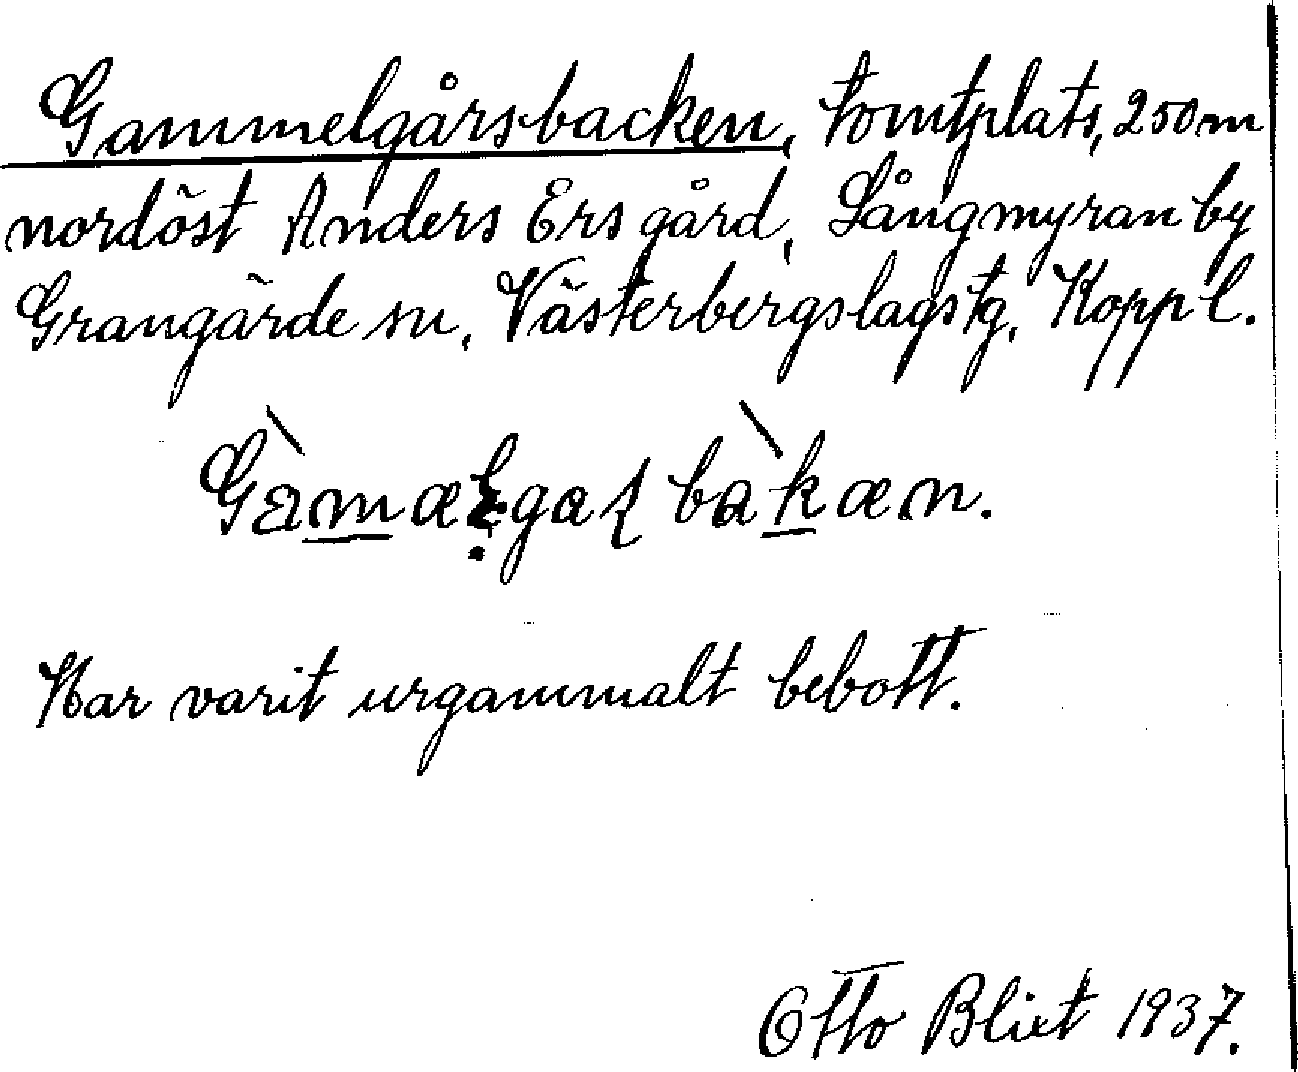 Gammelgårsbacken, tomtplats, 250 m
nordöst Anders Ers gård, Långmyran by
Grangärde sn, Västerbergslags tg, Kopp l.
Gàmælgaʃ bàkæn.
Har varit urgammalt bebott.
Otto Blixt 1937.